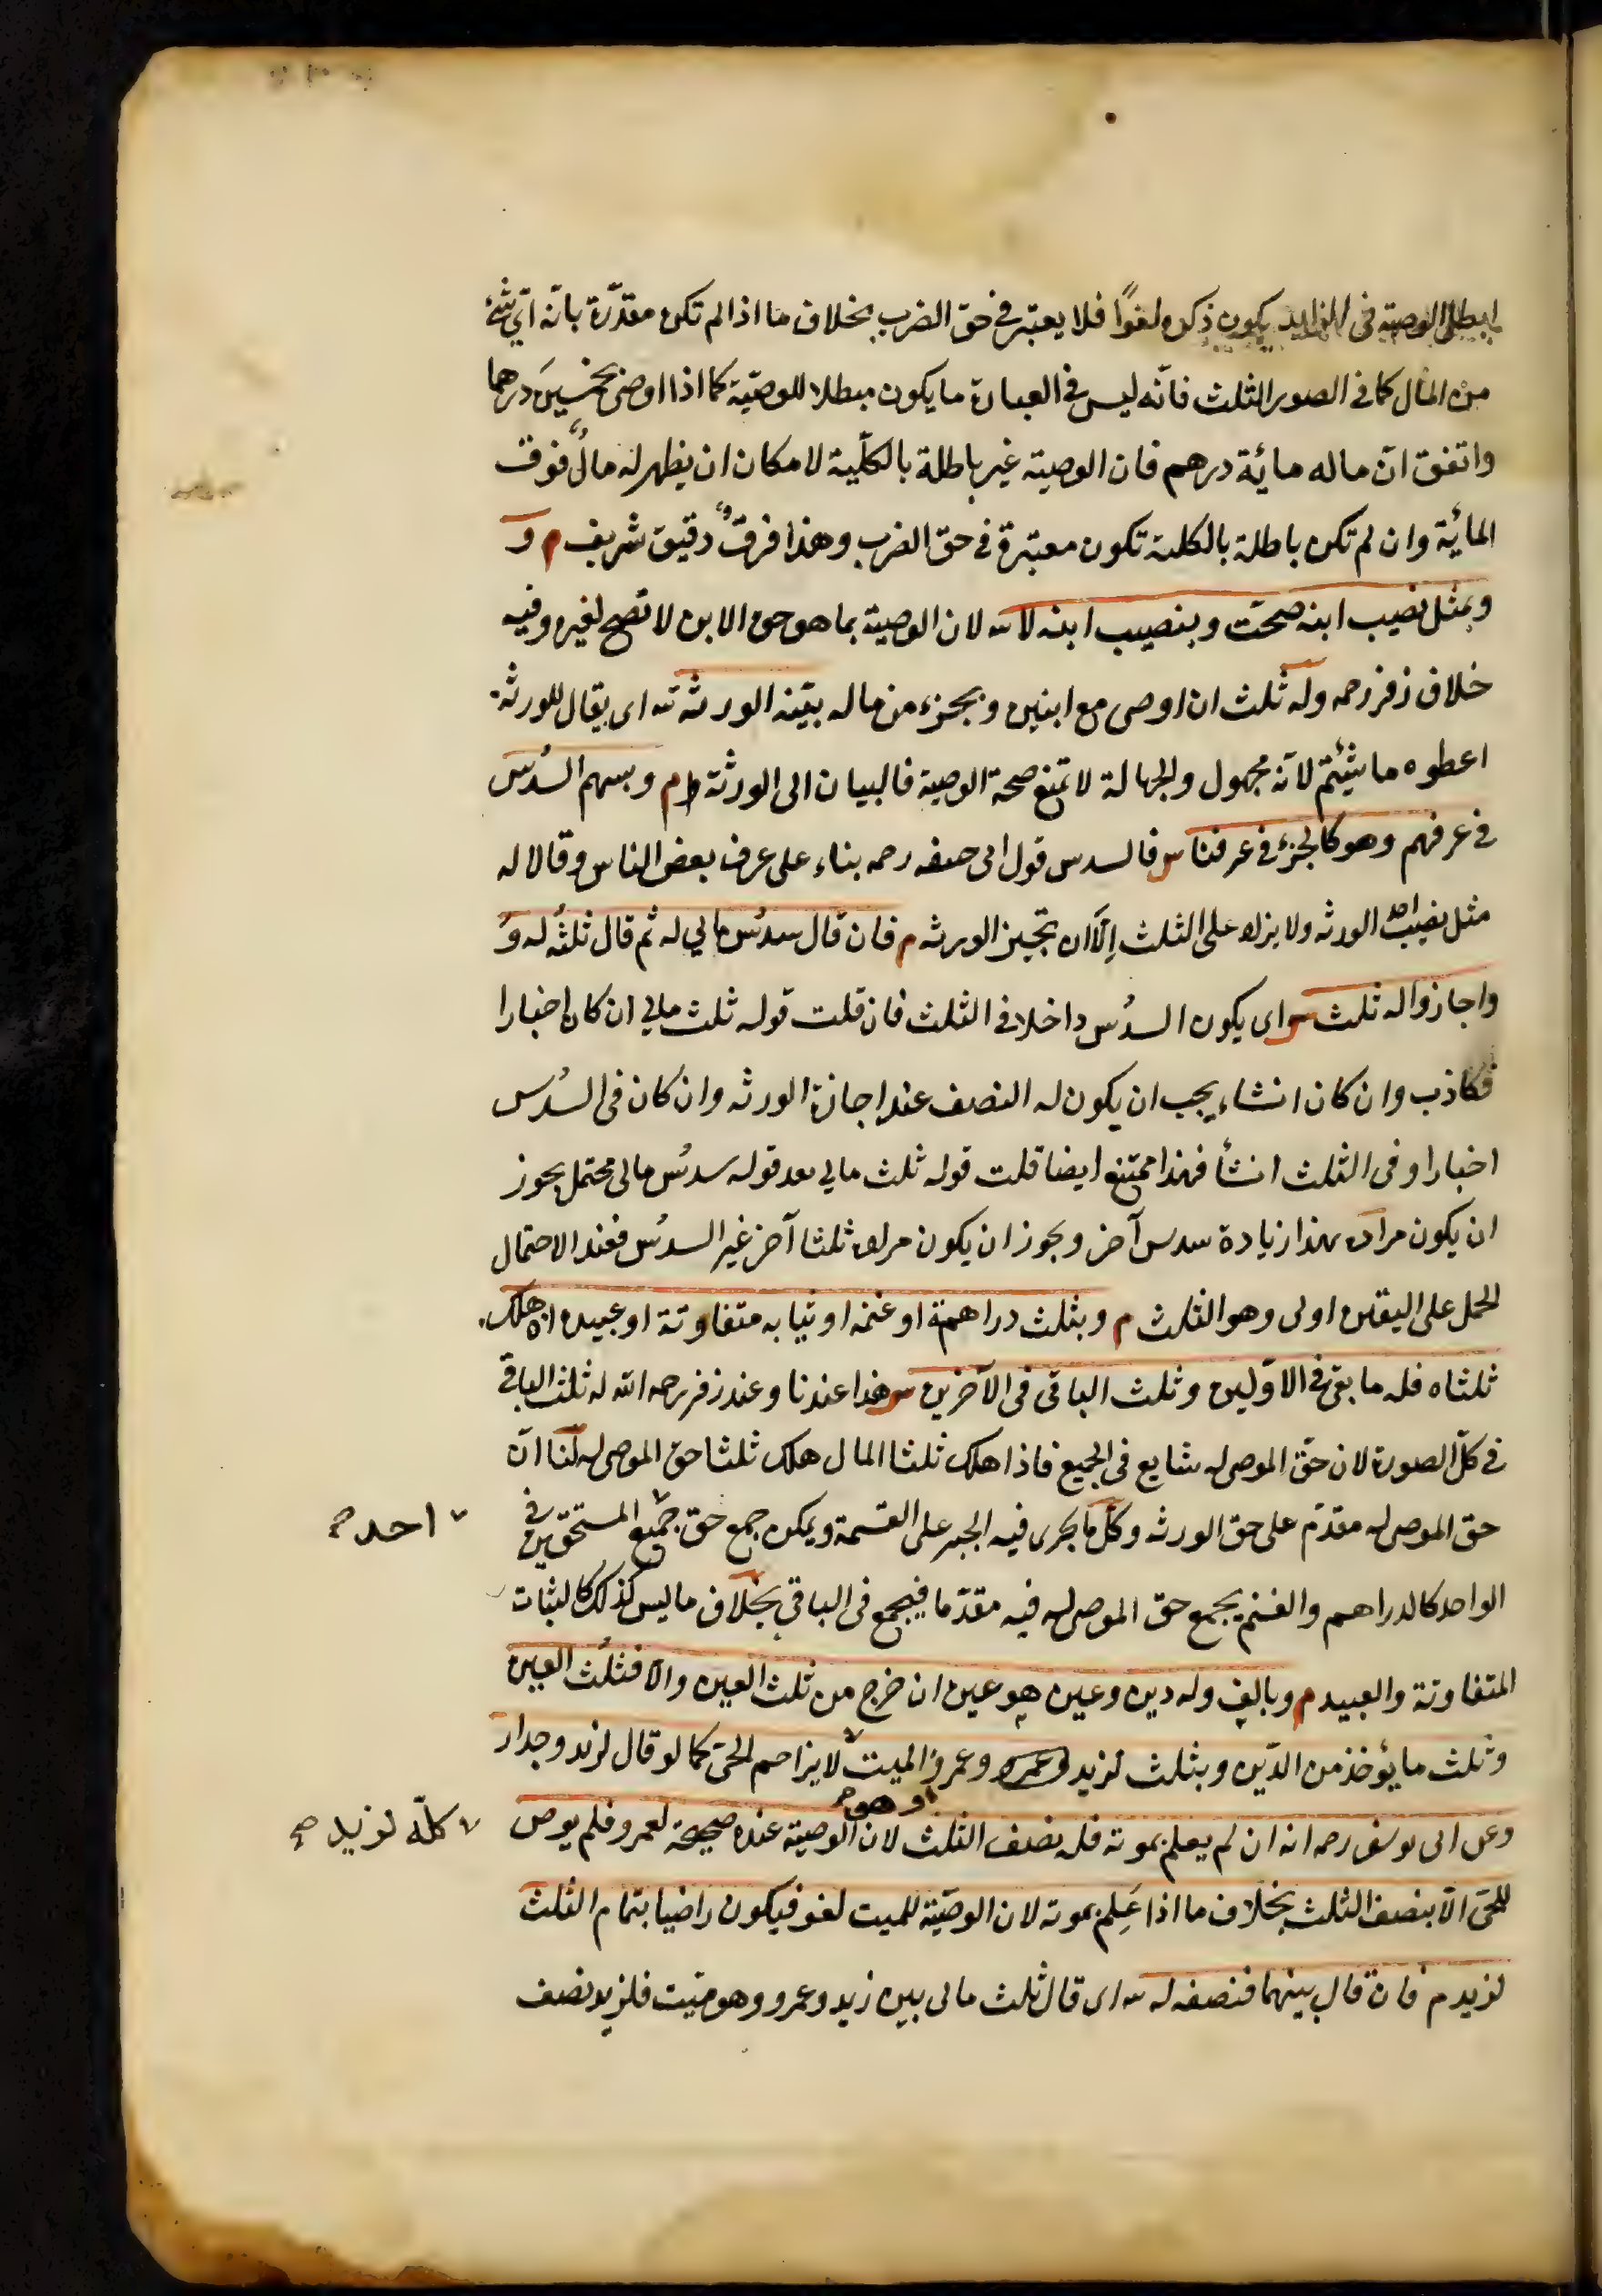 ابطل الوصية في الزايد يكون ذكره لغوًا فلا يعتبر في حق الضرب بخلاف ما اذا لم تكن مقدّرة بانّه ايّ شئ
من المال كما في الصور الثلث فانّه ليس في العبارة ما يكون مبطلا للوصيّة كما اذا اوصى بخمسينَ درهما
واتفق انّ ماله مائة درهم فان الوصية غير باطلة بالكلّية لامكان ان يظهر له مالٌ فوق
المائة وان لم تكن باطلة بالكلية تكون معتبرة في حق الضرب وهذا فرقٌ دقيق شريف م و
وبمثل نصيب ابنه صحّت وبنصيب ابنه لا س لان الوصية بما هو حق الابن لا تصح لغيره وفيه
خلاف زفر رحمه وله ثلث ان اوصى مع ابنين وبجزء من ماله بيّنه الورثة س اى يقال للورثة
اعطوه ما شئتم لانّه مجهول والجهالة لا تمنع صحة الوصية فالبيان الى الورثة م وبسهم السُدس
في عرفهم وهو كالجزء في عرفنا س فالسدس قول ابى حنيفه رحمه بناء على عرف بعض الناس وقالا له
مثل نصيب احد الورثه ولا يزاد على الثلث اِلّا ان تجيز الورثه م فان قال سدسُ مالي له ثم قال ثلثُه له و
واجازوا له ثلث س اى يكون السدُس داخلا في الثلث فان قلت قوله ثلث مالي ان كان اخبارا
فكاذب وان كان انشاء يجب ان يكون له النصف عند اجازة الورثه وان كان في السُدس
اخبارا وفى الثلث انشأ فهذا ممتنع ايضا قلت قوله ثلث مالي بعد قوله سدسُ مالى محتمل يجوز
ان يكون مراده بهذا زيادة سدس آخر ويجوز ان يكون مراده ثلثا آخر غير السدسُ فعند الاحتمال
الحمل على اليقين اولى وهو الثلث م وبثلث دراهمه او غنمه او ثيابه متفاوتة او عبيده ان هلك
ثلثاه فله ما بقى في الاوّلين وثلث الباقى فى الآخرين س هذا عندنا وعند زفر رحمه الله له ثلث الباقى
في كلّ الصورة لان حقّ الموصى له شايع فى الجميع فاذا هلك ثلثا المال هلك ثلثا حق الموصى له لنا انّ
حق الموصى له مقدّم على حق الورثه وكلّ ما يجرى فيه الجبر على القسمة ويمكن جمع حق جميع المستحقين في
احد صح
الواحد كالدراهم والغنم يجمع حق الموصى له فيه مقدّما فيجمع فى الباقي بخلاف ما ليس كذلك كالثياب
المتفاوتة والعبيد م وبالفٍ وله دين وعين هو عين ان خرج من ثلث العين والّا فثلُث العين
وثلث ما يؤخذ من الدّين وبثلث لزيد وعمرو وعمرو الميت لا يزاحم الحىّ كما لو قال لزيد وجدار
او هو صح
وعن ابى يوسف رحمه انه ان لم يعلم بموته فله نصف الثلث لان الوصية عنده صحيحة لعمرو فلم يوص
كلّه لزيد صح
للحىّ الّا بنصف الثلث بخلاف ما اذا عَلِم بموته لان الوصيّة للميت لغو فيكون راضيا بتمام الثلث
لزيد م فان قال بينهما فنصفه له س اى قال ثلث مالى بين زيد وعمرو وهو ميّت فلزيد نصف